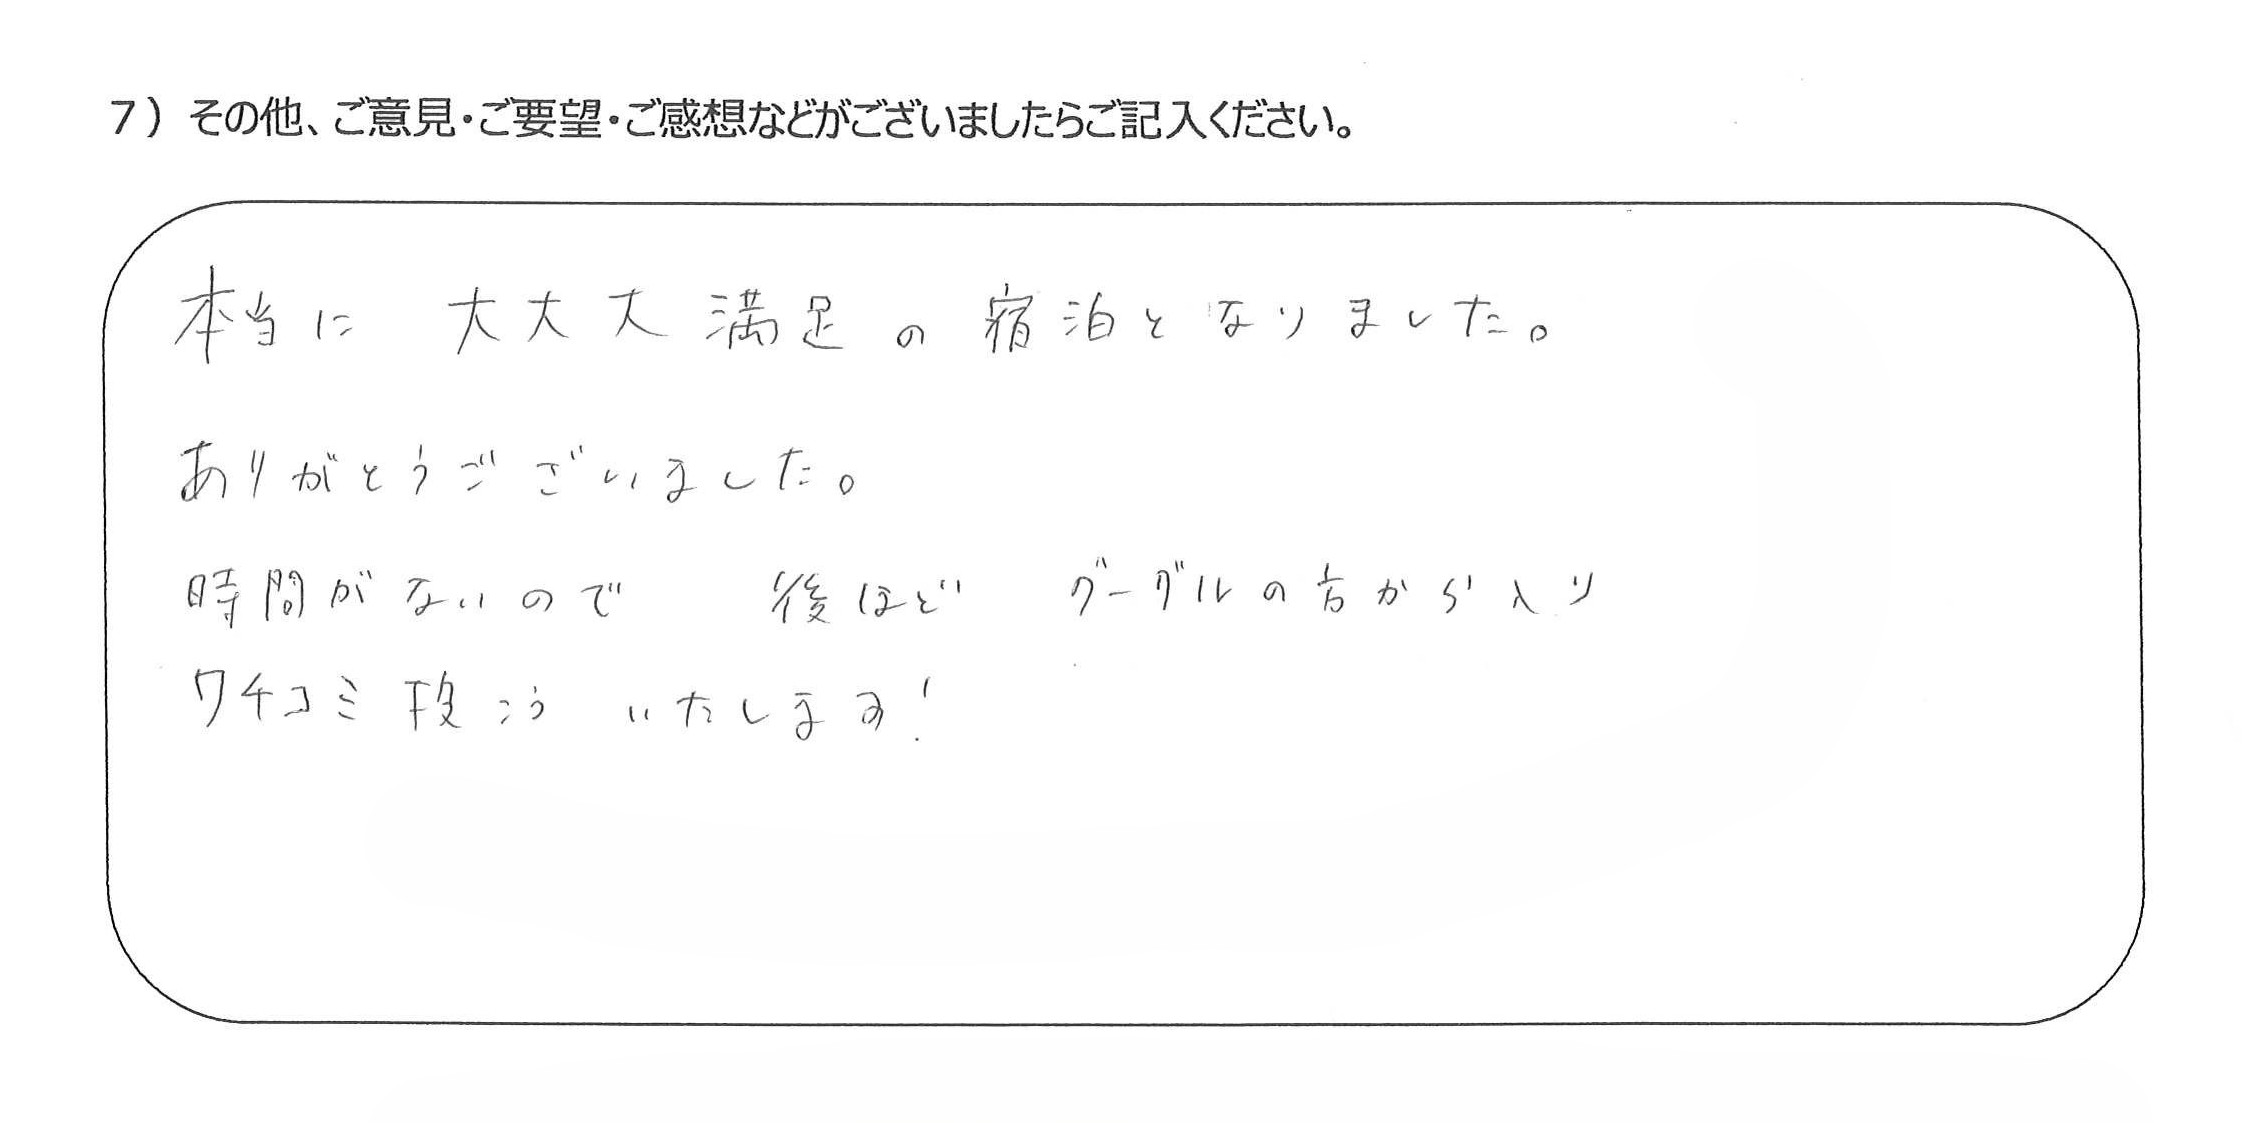 7）その他、ご意見・ご要望・ご感想などがございましたらご記入ください。
本当に 大大大満足の宿泊となりました。
ありがとうございました。
時間がないので 後ほど グーグルの方から入り
クチコミ投こういたします!